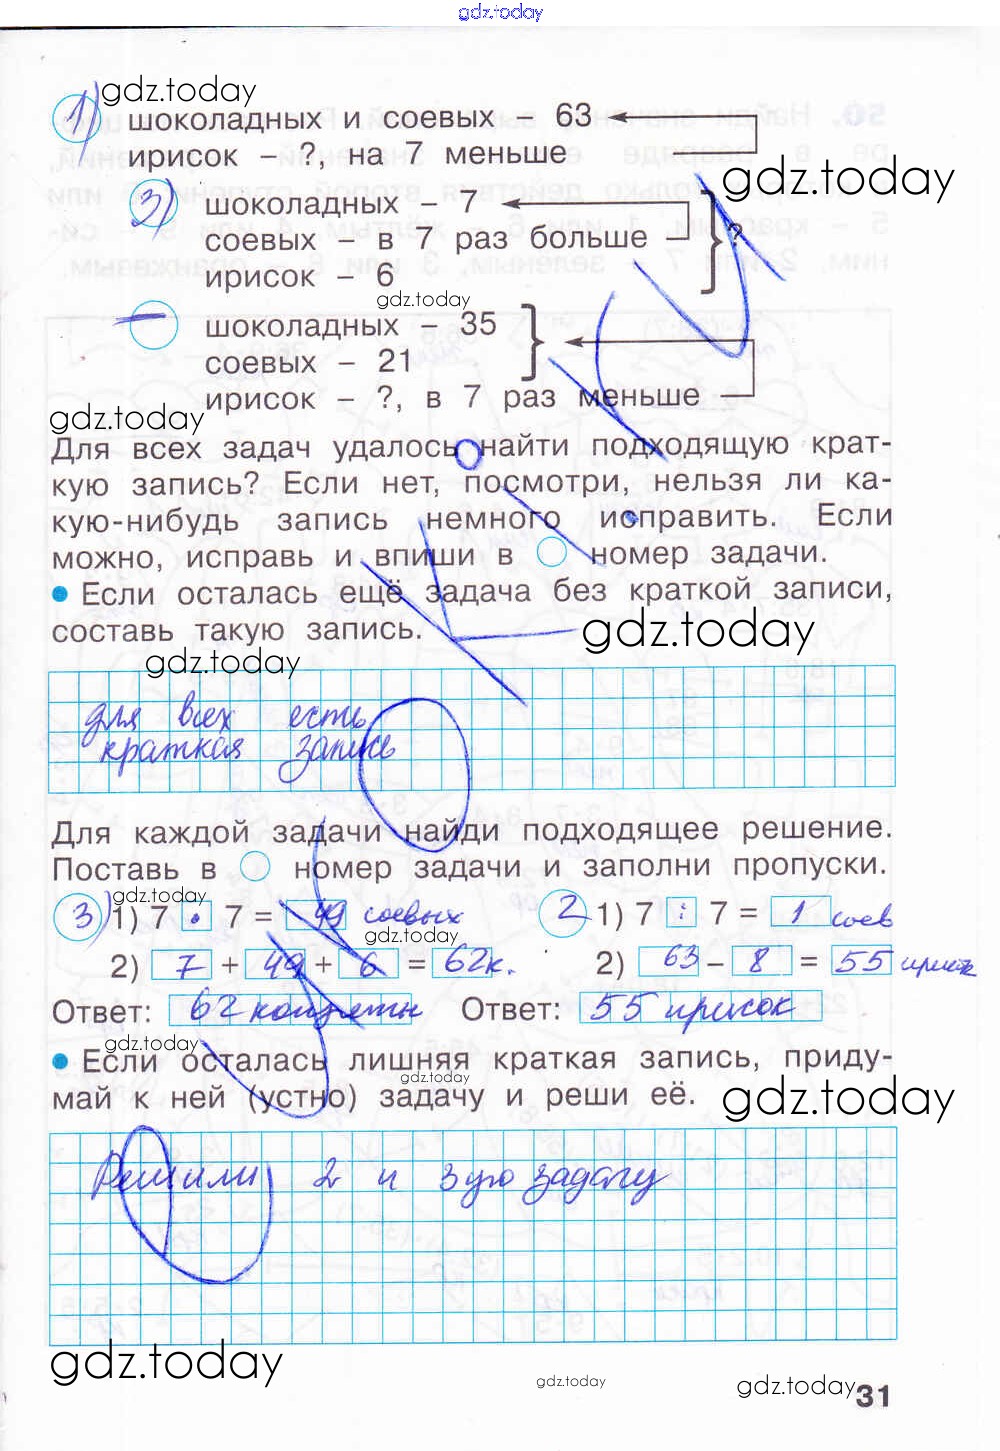 gdz.today
1) gdz.today
шоколадных и соевых – 63
ирисок – ?, на 7 меньше
gdz.today
3) шоколадных – 7
соевых – в 7 раз больше ?
ирисок – 6
gdz.today
шоколадных – 35
соевых – 21
ирисок – ?, в 7 раз меньше
gdz.today
Для всех задач удалось найти подходящую крат-
кую запись? Если нет, посмотри, нельзя ли ка-
кую-нибудь запись немного исправить. Если
можно, исправь и впиши в номер задачи.
• Если осталась ещё задача без краткой записи,
составь такую запись.
gdz.today
gdz.today
для всех есть
краткая запись
Для каждой задачи найди подходящее решение.
Поставь в номер задачи и заполни пропуски.
gdz.today
3) 1) 7 · 7 = 49 соевых 2 1) 7 : 7 = 1 соев
gdz.today
2) 7 + 49 + 6 = 62к. 2) 63 – 8 = 55 ирисок
Ответ: 62 конфеты Ответ: 55 ирисок
gdz.today
• Если осталась лишняя краткая запись, приду-
gdz.today
май к ней (устно) задачу и реши её.
gdz.today
Решили 2 и 3ую задачу
gdz.today
gdz.today
gdz.today
31